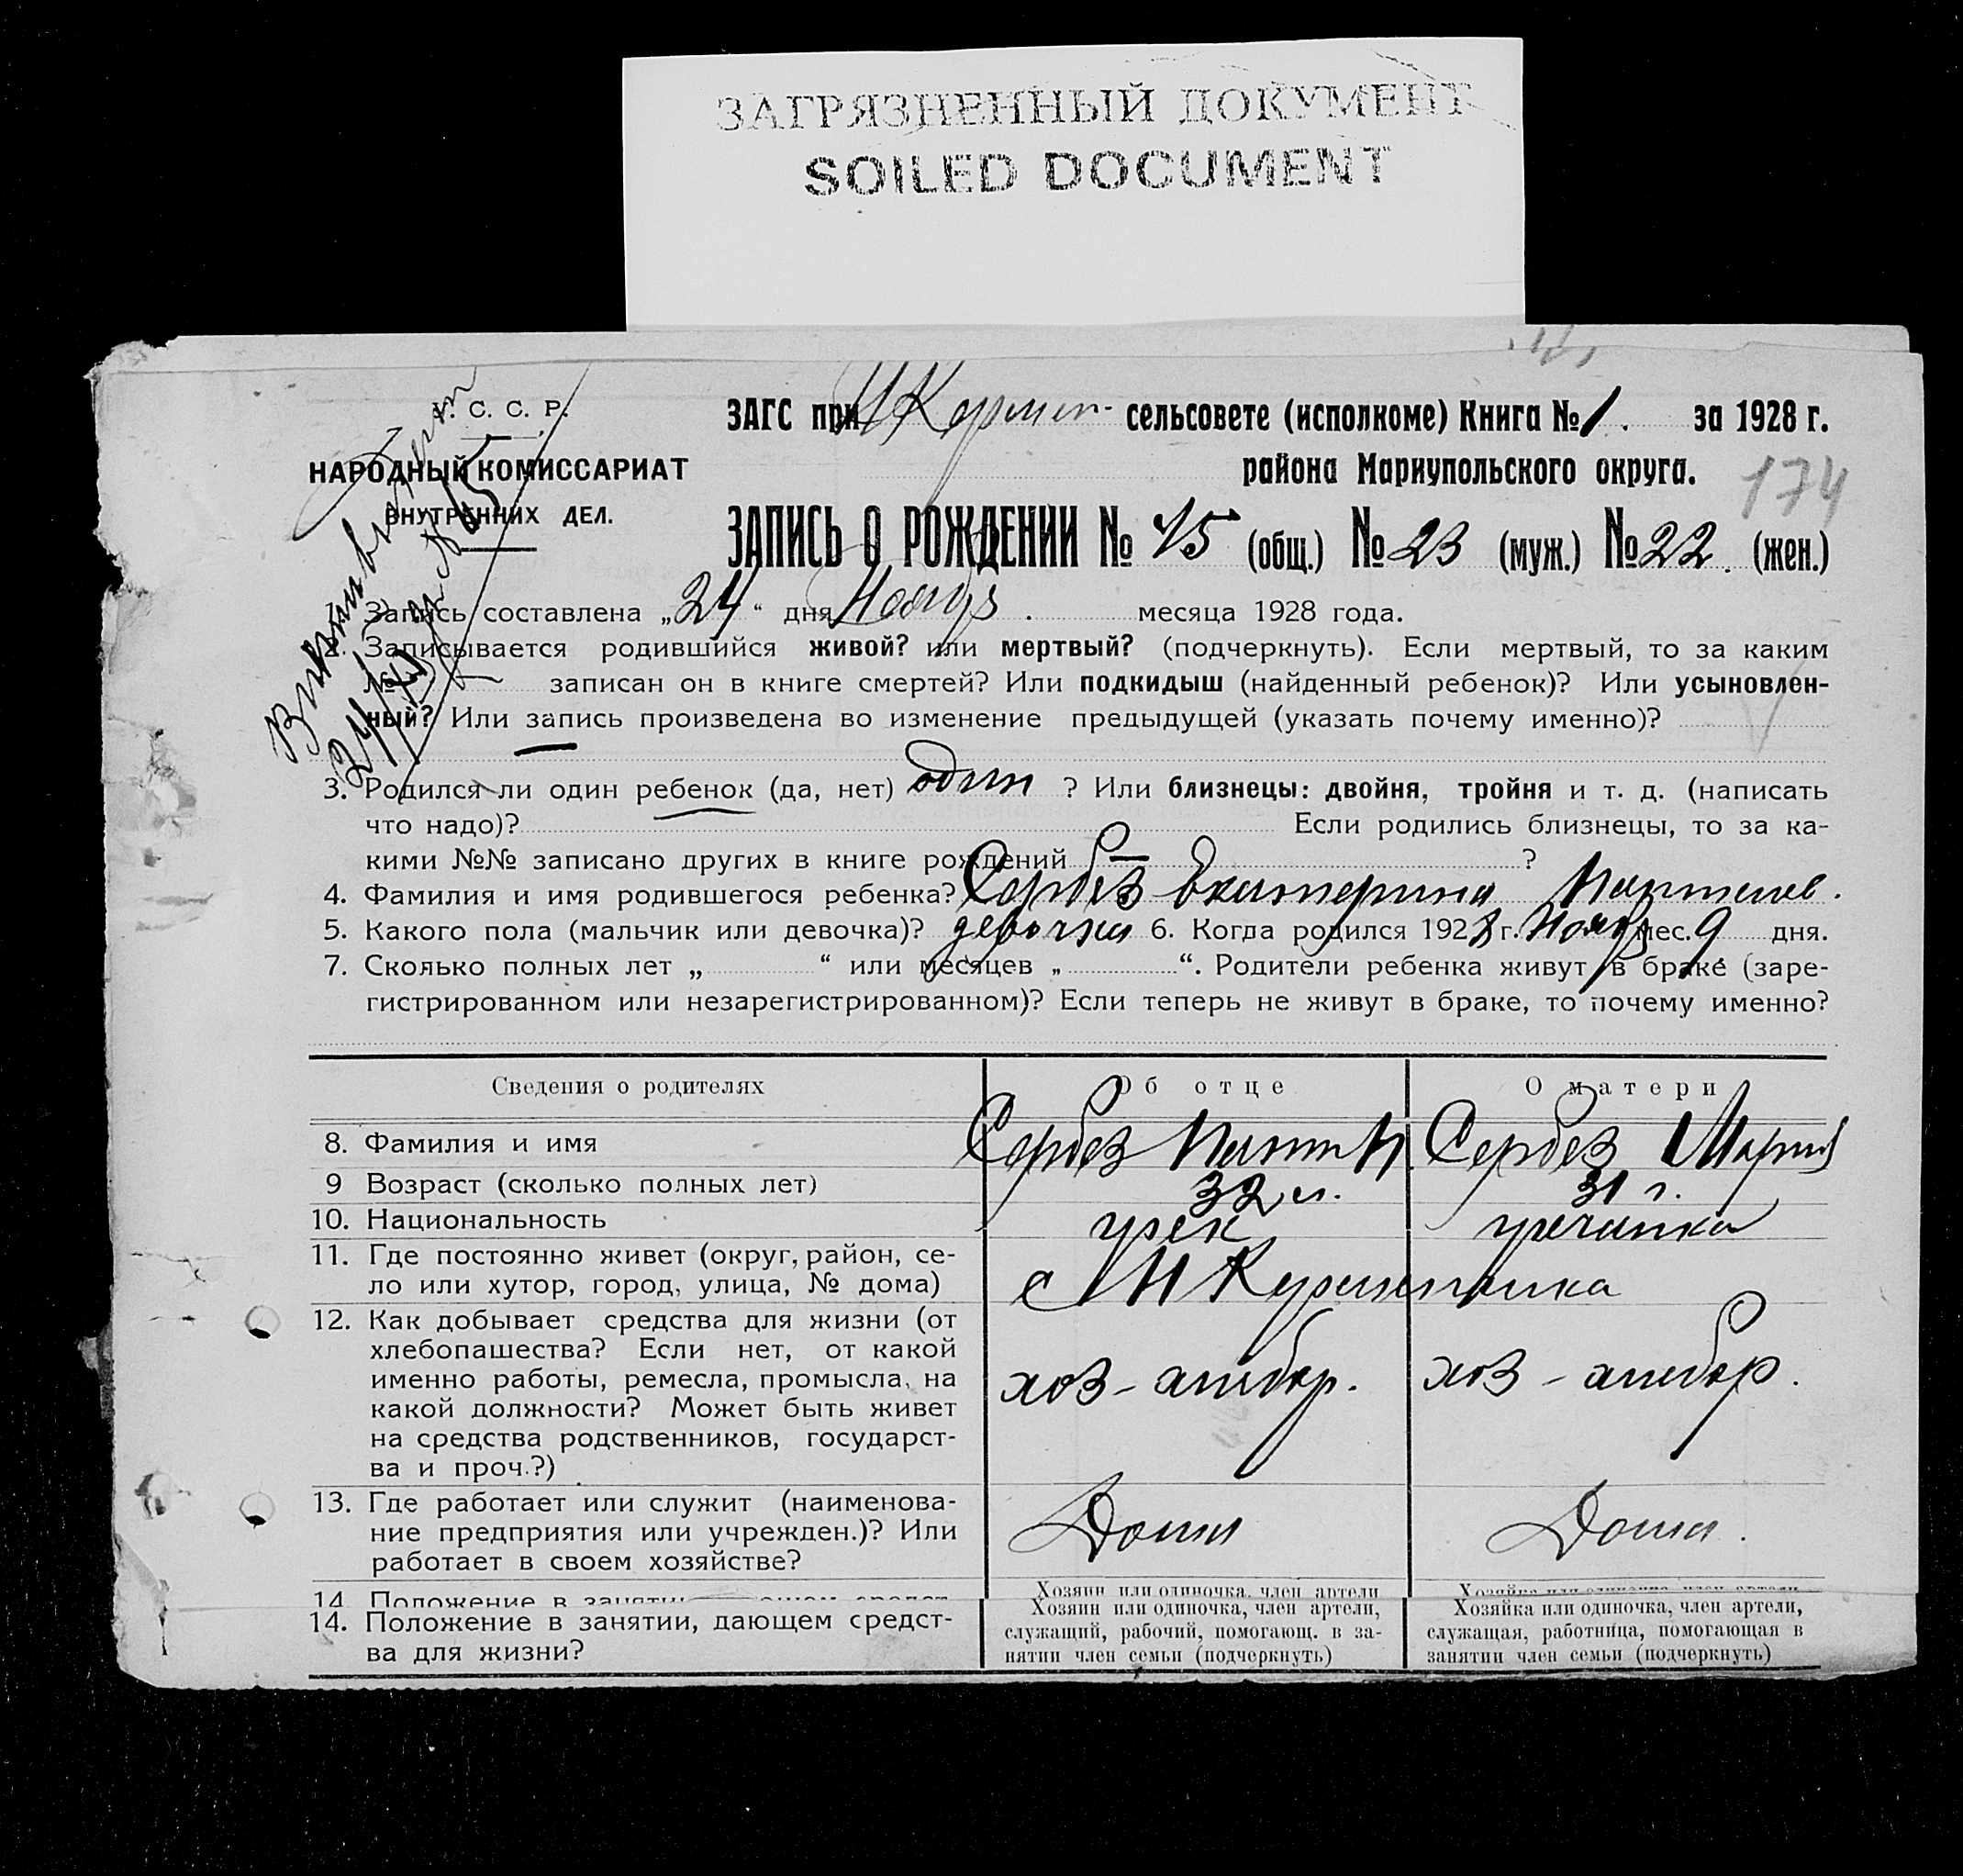 ЗАГРЯЗНЕННЫЙ ДОКУМЕНТ
SOILED DOCUMENT
С. С. Р.
ЗАГС при сельсовете (исполкоме) Книга № 1. за 1928 г.
НАРОДНЫЙ КОМИССАРИАТ
района Мариупольского округа.
174
ВНУТРЕННИХ ДЕЛ.
ЗАПИСЬ О РОЖДЕНИИ № 45 (общ.) № 23 (муж.) № 22. (жен.)
Запись составлена „24“ дня Ноябр. месяца 1928 года.
2. Записывается родившийся живой? или мертвый? (подчеркнуть). Если мертвый, то за каким
№ записан он в книге смертей? Или подкидыш (найденный ребенок)? Или усыновлен-
ный? Или запись произведена во изменение предыдущей (указать почему именно)?
3. Родился ли один ребенок (да, нет) один ? Или близнецы: двойня, тройня и т. д. (написать
что надо)? Если родились близнецы, то за ка-
кими №№ записано других в книге рождений — ?
4. Фамилия и имя родившегося ребенка? Сербез Екатерина
5. Какого пола (мальчик или девочка)? девочка 6. Когда родился 1928 г. Ноябр мес. 9 дня.
7. Сколько полных лет „ “ или месяцев „ “. Родители ребенка живут в браке (заре-
гистрированном или незарегистрированном)? Если теперь не живут в браке, то почему именно?
Сведения о родителях Об отце О матери
8. Фамилия и имя Сербез Сербез Мария
9 Возраст (сколько полных лет) 32 л. 31 г.
10. Национальность грек гречанка
11. Где постоянно живет (округ, район, се-
ло или хутор, город, улица, № дома)
с
12. Как добывает средства для жизни (от
хлебопашества? Если нет, от какой
именно работы, ремесла, промысла, на
какой должности? Может быть живет
на средства родственников, государст-
ва и проч.?)
хоз-хлебор. хоз-хлебор.
13. Где работает или служит (наименова-
ние предприятия или учрежден.)? Или
работает в своем хозяйстве?
Дома Дома.
14 Положение в
Хозяин или одиночка, член артели
14. Положение в занятии, дающем средст-
ва для жизни?
Хозяин или одиночка, член артели,
служащий, рабочий, помогающ. в за-
нятии член семьи (подчеркнуть)
Хозяйка или одиночка, член артели,
служащая, работница, помогающая в
занятии член семьи (подчеркнуть)